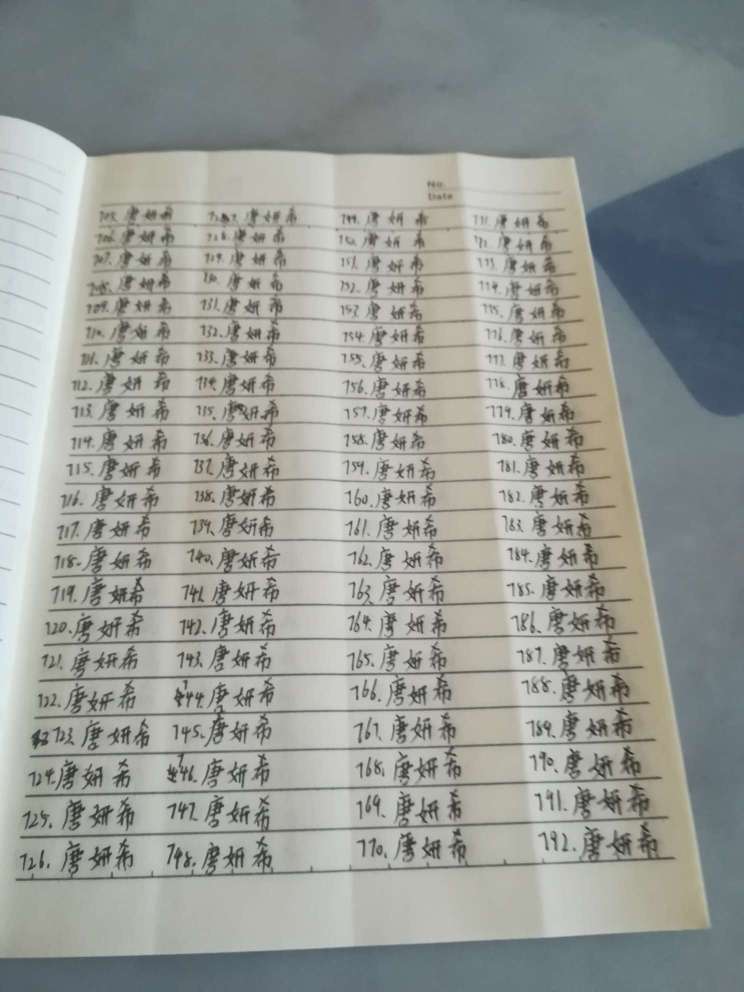 No.
Date
705. 唐妍希 727. 唐妍希 749. 唐妍希 771. 唐妍希
706. 唐妍希 728. 唐妍希 750. 唐妍希 772. 唐妍希
707. 唐妍希 729. 唐妍希 751. 唐妍希 773. 唐妍希
708. 唐妍希 730. 唐妍希 752. 唐妍希 774. 唐妍希
709. 唐妍希 731. 唐妍希 753. 唐妍希 775. 唐妍希
710. 唐妍希 732. 唐妍希 754. 唐妍希 776. 唐妍希
711. 唐妍希 733. 唐妍希 755. 唐妍希 777. 唐妍希
712. 唐妍希 734. 唐妍希 756. 唐妍希 778. 唐妍希
713. 唐妍希 735. 唐妍希 757. 唐妍希 779. 唐妍希
714. 唐妍希 736. 唐妍希 758. 唐妍希 780. 唐妍希
715. 唐妍希 737. 唐妍希 759. 唐妍希 781. 唐妍希
716. 唐妍希 738. 唐妍希 760. 唐妍希 782. 唐妍希
717. 唐妍希 739. 唐妍希 761. 唐妍希 783. 唐妍希
718. 唐妍希 740. 唐妍希 762. 唐妍希 784. 唐妍希
719. 唐妍希 741. 唐妍希 763. 唐妍希 785. 唐妍希
720. 唐妍希 742. 唐妍希 764. 唐妍希 786. 唐妍希
721. 唐妍希 743. 唐妍希 765. 唐妍希 787. 唐妍希
722. 唐妍希 744. 唐妍希 766. 唐妍希 788. 唐妍希
723. 唐妍希 745. 唐妍希 767. 唐妍希 789. 唐妍希
724. 唐妍希 746. 唐妍希 768. 唐妍希 790. 唐妍希
725. 唐妍希 747. 唐妍希 769. 唐妍希 791. 唐妍希
726. 唐妍希 748. 唐妍希 770. 唐妍希 792. 唐妍希